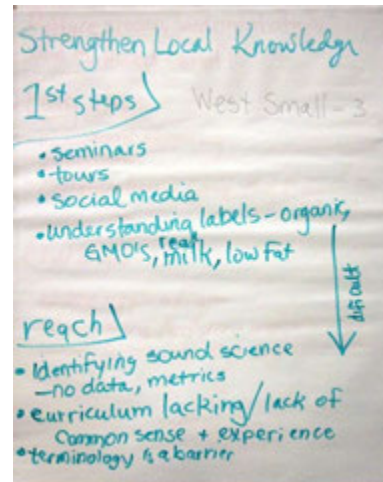 Strengthen Local Knowledge
1st steps
West Small - 3
• seminars
• tours
• social media
• understanding labels - organic,
GMO's, real milk, low fat
difficult
reach
• Identifying sound science
- no data, metrics
• curriculum lacking / lack of
Common sense + experience
• terminology is a barrier